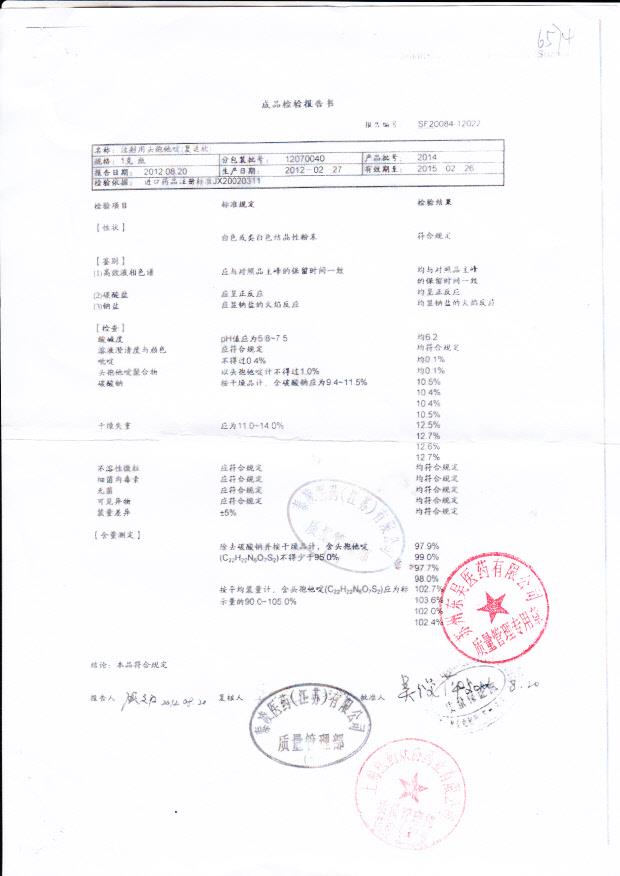 65)4
成品检验报告书
报告编号: SF20084-12022
名称: 注射用头孢他啶(复达欣)
规格: 1克/瓶 分包装批号: 12070040 产品批号: 2014
报告日期: 2012.08.20 生产日期: 2012-02 27 有效期至: 2015 02 26
检验依据: 进口药品注册标准JX20020311
检验项目 标准规定 检验结果
[性状]
白色或类白色结晶性粉末 符合规定
[鉴别]
(1)高效液相色谱 应与对照品主峰的保留时间一致 均与对照品主峰
的保留时间一致
(2)碳酸盐 应呈正反应 均呈正反应
(3)钠盐 应显钠盐的火焰反应 均显钠盐的火焰反应
[检查]
酸碱度 pH值应为5.8~7.5 均6.2
溶液澄清度与颜色 应符合规定 均符合规定
吡啶 不得过0.4% 均0.1%
头孢他啶聚合物 以头孢他啶计不得过1.0% 均0.1%
碳酸钠 按干燥品计, 含碳酸钠应为9.4~11.5% 10.5%
10.4%
10.4%
10.5%
干燥失重 应为11.0~14.0% 12.5%
12.7%
12.6%
12.7%
不溶性微粒 应符合规定 均符合规定
细菌内毒素 应符合规定 均符合规定
无菌 应符合规定 均符合规定
可见异物 应符合规定 均符合规定
装量差异 ±5% 均符合规定
[含量测定]
除去碳酸钠并按干燥品计, 含头孢他啶 97.9%
(C22H22N6O7S2)不得少于95.0% 99.0%
97.7%
98.0%
按平均装量计, 含头孢他啶(C22H22N6O7S2)应为标 102.7%
示量的90.0-105.0% 103.6%
102.0%
102.4%
结论: 本品符合规定
报告人 2012.08.20 复核人 批准人 8.20
医药(江苏)有限公司
质量管理部
苏州东吴医药有限公司
质量管理专用章
医药(江苏)有限公司
质量管理部